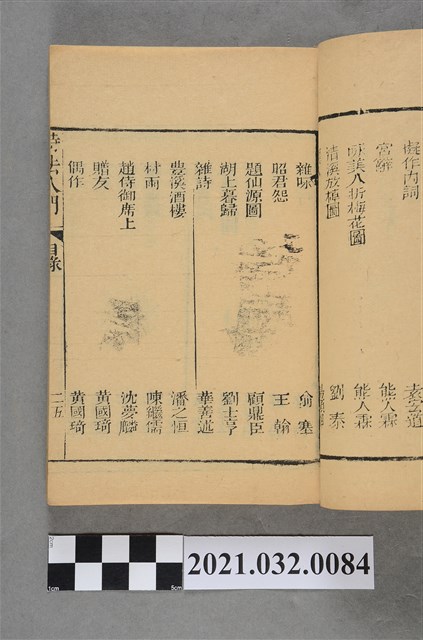 擬作內詞 李玄道
宮辭 熊人霖
八折梅花圖 熊人霖
清溪放棹圖 劉泰
雜咏 翁塞
昭君怨 王翰
題仙源圖 顧鼎臣
湖上暮歸 劉士亨
雜詩 華善述
豐溪酒樓 潘之恒
村雨 陳繼儒
趙侍御席上 沈夢麟
贈友 黃國琦
偶作 黃國琦
詩法入門 目錄 二五
2021.032.0084
1cm
5cm